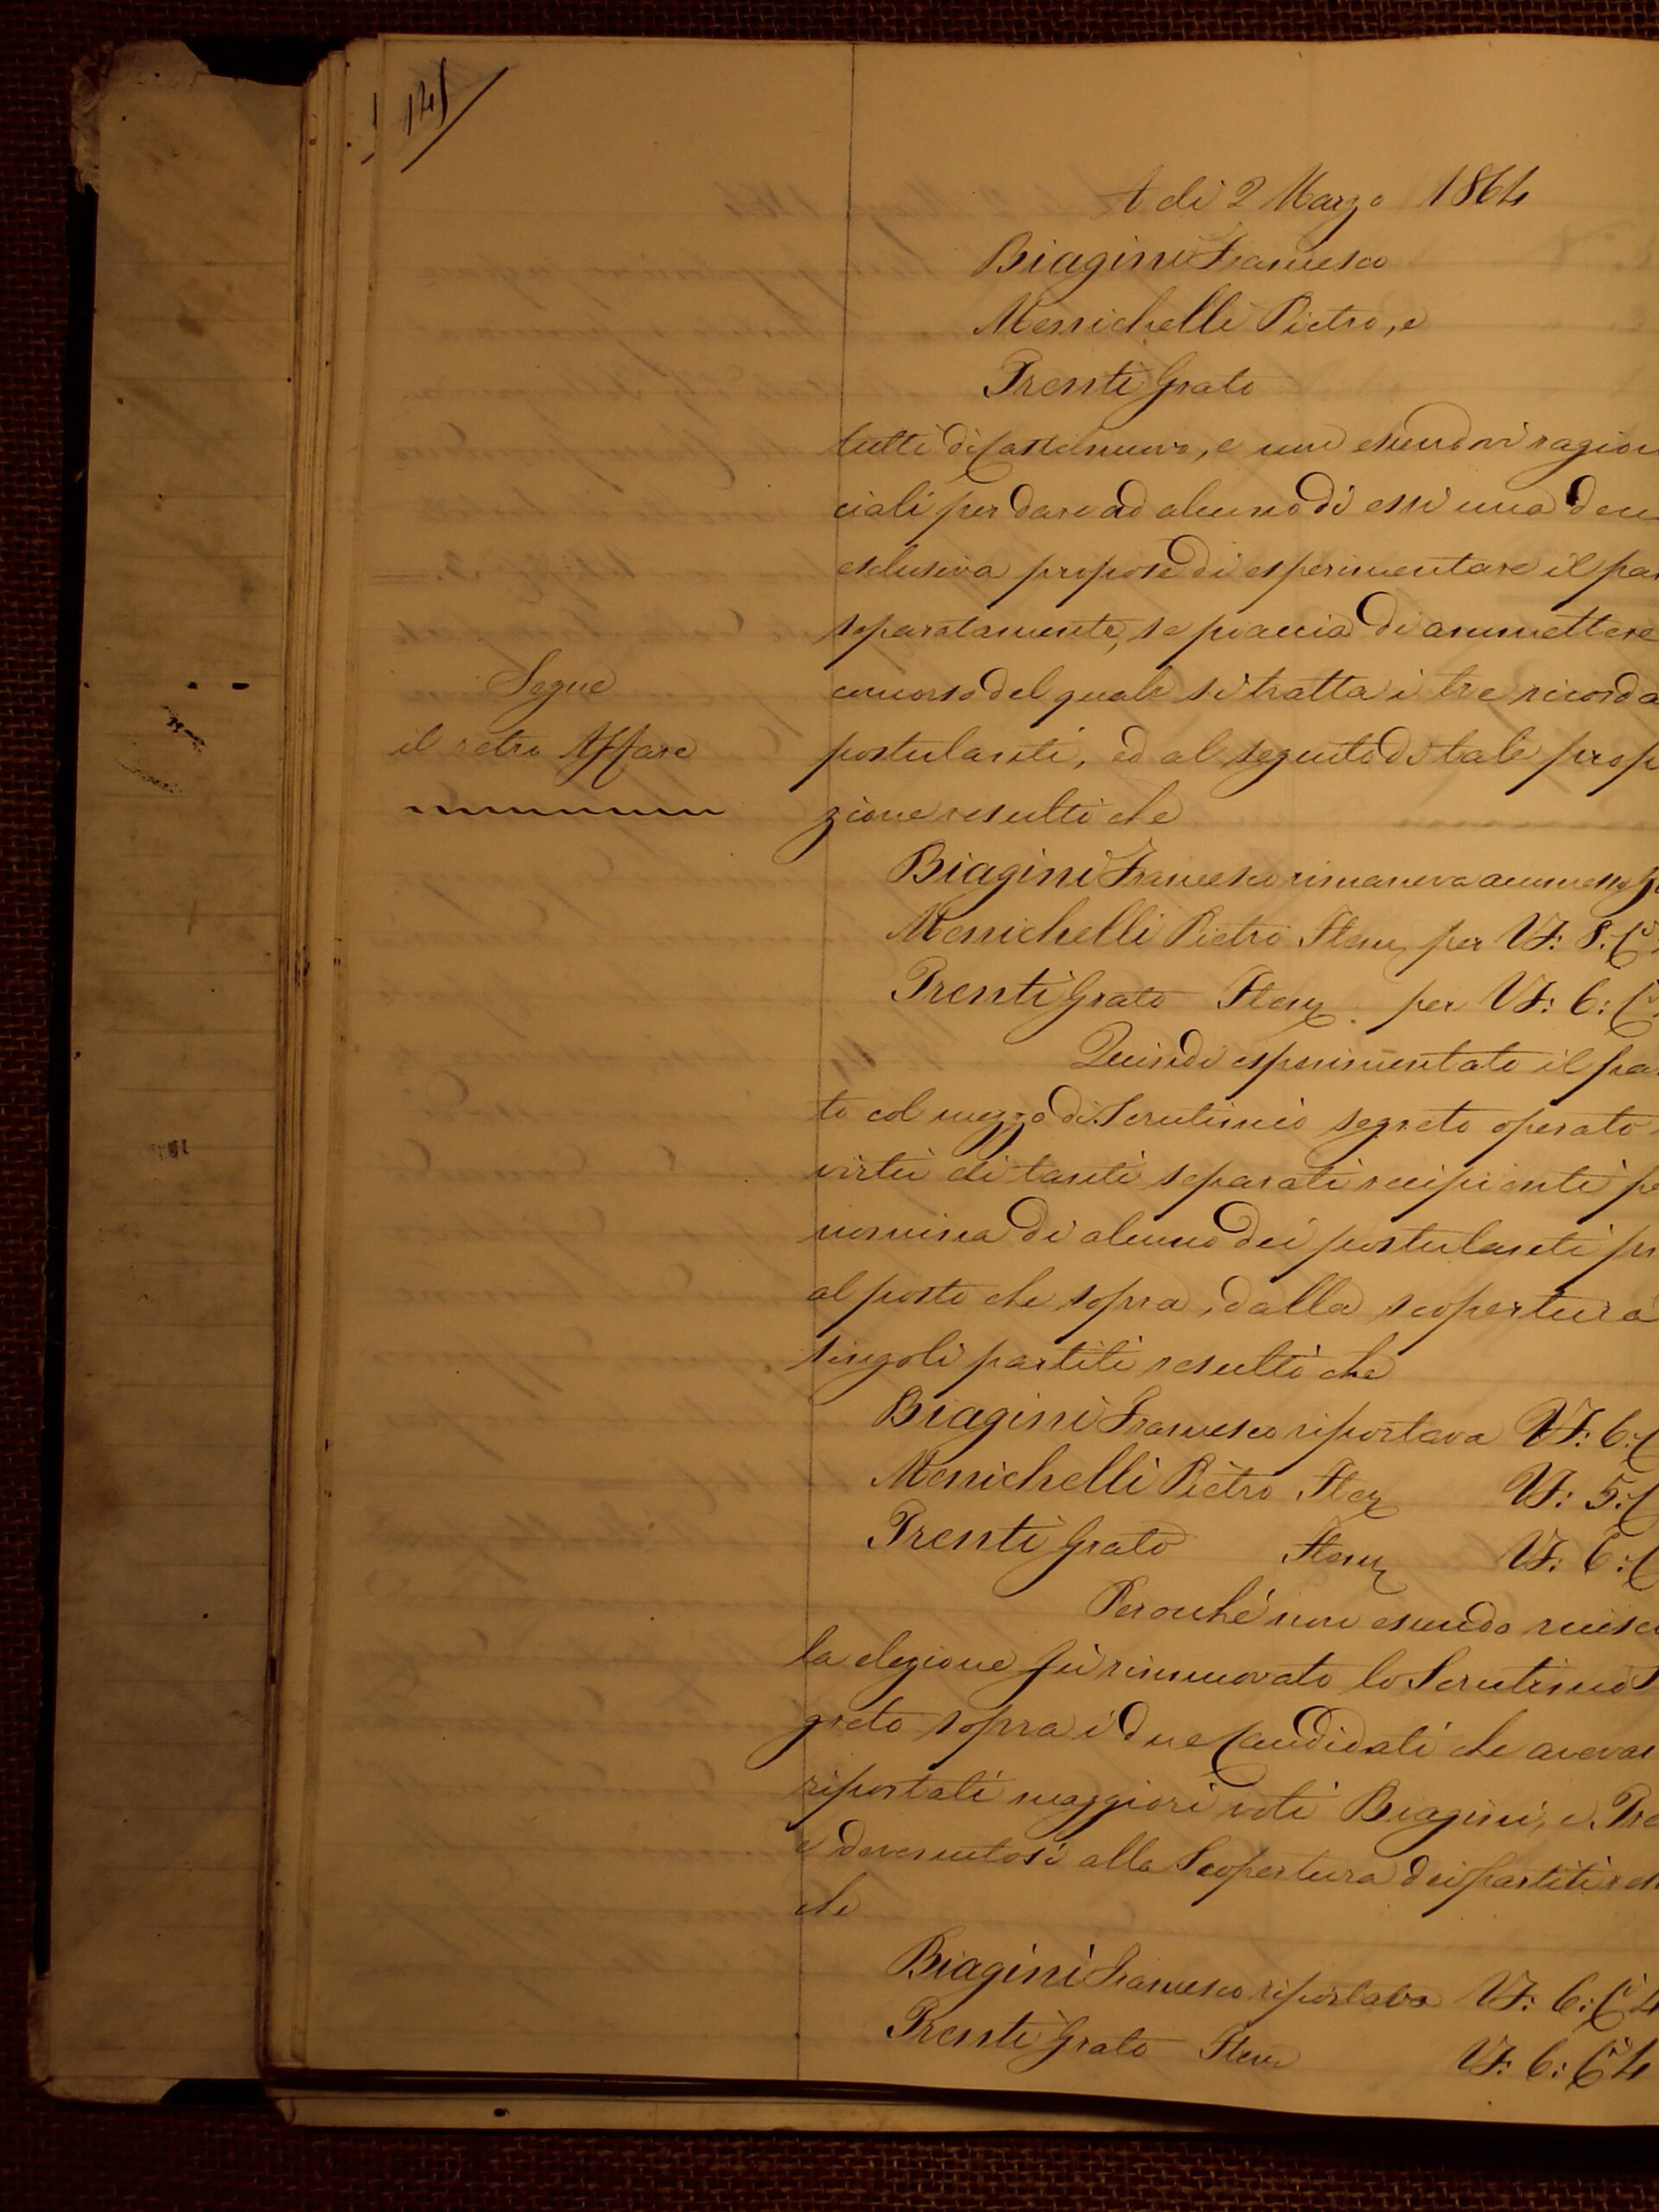 A di 2 Marzo 1864
Biagini Francesco
Menichelli Pietro, e
Prenti Grato
tutti di Castelnuovo, e non essendovi ragion
ciali per dare ad alcuno di essi una
esclusiva propose di esperimentare il par
separatamente, se piaccia di ammettere
Segue
concorso del quale si tratta i tre ricorda
il retro Affare
postulanti, ed al seguito di tale prop
zione resultò che
Biagini Francesco rimaneva ammesso
Menichelli Pietro Item per Vf: 8. Ci
Prenti Grato Item per Vf: 6: Ci
Quindi esperimentato il par
to col mezzo di Scrutinio segreto operato
virtù di tanti separati recipienti pe
nomina di alcuno dei postulanti pr
al posto che sopra, dalla scopertura
singoli partiti resultò che
Biagini Francesco riportava Vf: 6: C
Menichelli Pietro Item Vf: 5: C
Prenti Grato Item Vf: 6: C
Perochè non essendo riusci
la elezione fù rinnuovato lo Scrutinio S
greto sopra i due Candidati che avevan
riportati maggiori voti Biagini, e Pre
e devenutosi alla Scopertura dei partiti res
che
Biagini Francesco riportava Vf: 6: Ci 4
Prenti Grato Item Vf: 6: Ci 4